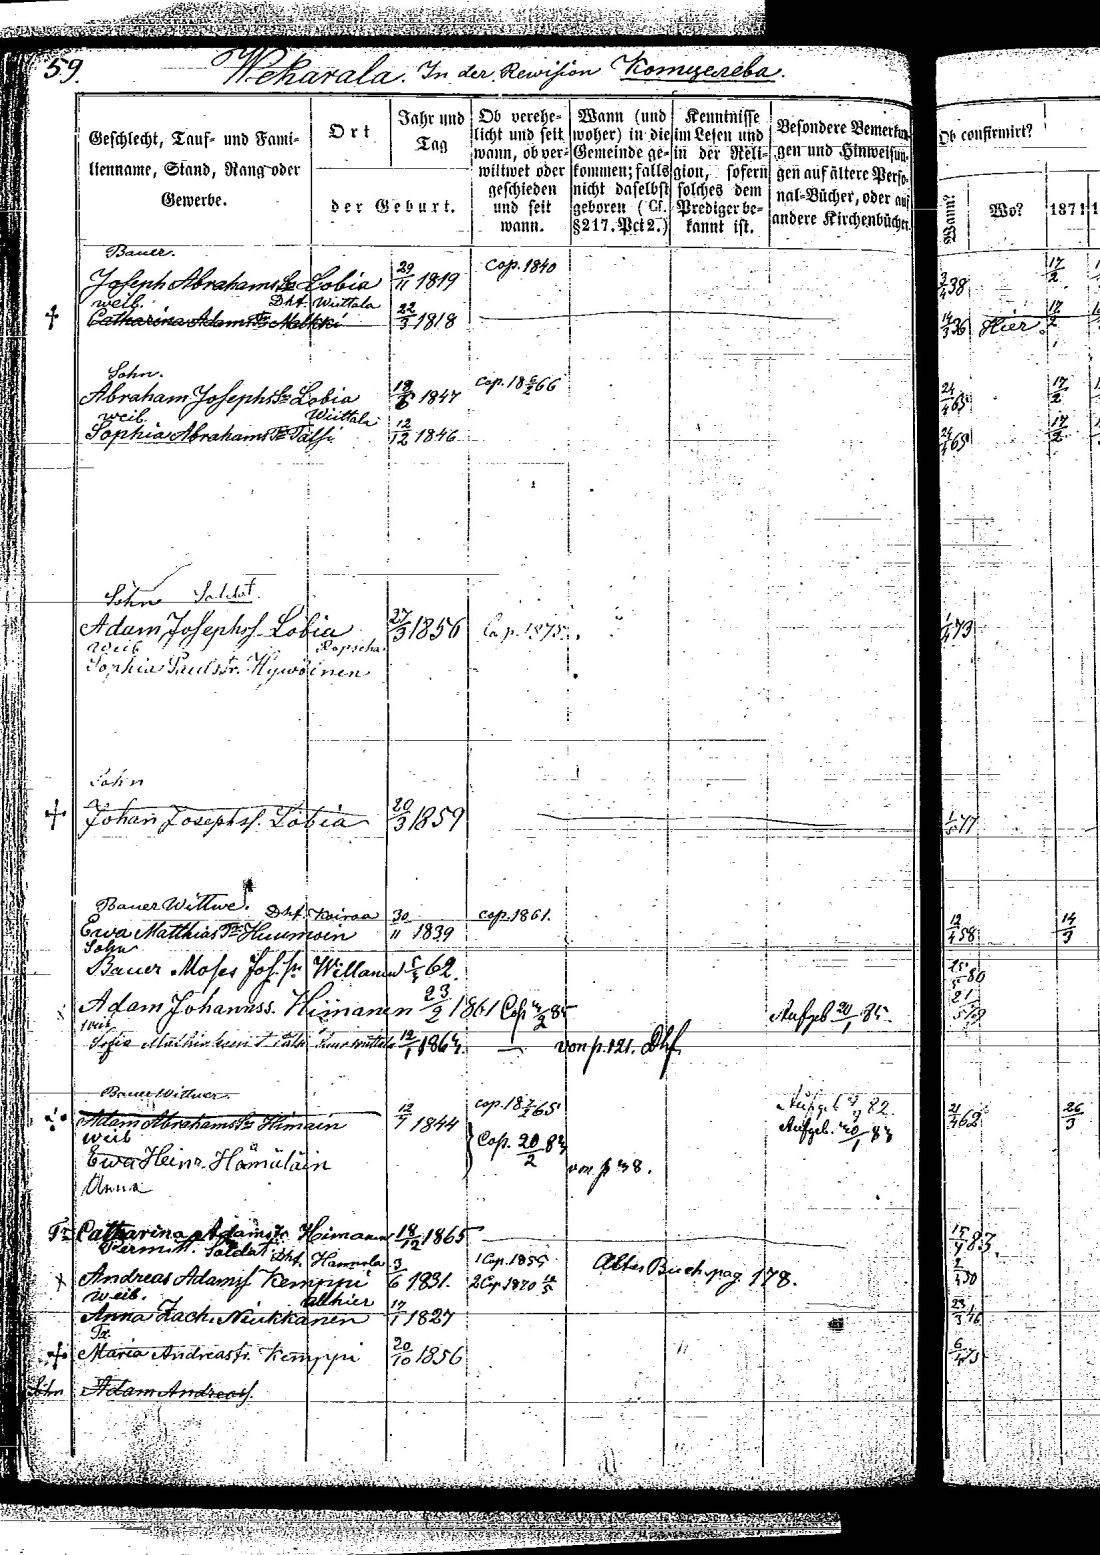 59.
Wekarala. In der Revision Котуселева.
Geschlecht, Tauf- und Fami-
lienname, Stand, Rang oder
Gewerbe.
Ort
Jahr und
Tag
der Geburt.
Ob verehe-
licht und seit
wann, ob ver-
wittwet oder
geschieden
und seit
wann.
Wann (und
woher) in die
Gemeinde ge-
kommen; falls
nicht daselbst
geboren (Cf.
§217. Pct 2.)
Kenntnisse
im Lesen und
in der Reli-
gion, sofern
solches dem
Prediger be-
kannt ist.
Besondere Bemerkun-
gen und Hinweisun-
gen auf ältere Perso-
nal-Bücher, oder auf
andere Kirchenbücher.
Ob confirmirt?
Wann?
Wo?
1871
Bauer.
Joseph Abrahams Lobia 29/11 1819 Cop. 1840 38 17/2
weib. Dhf. Wiittala
Catharina Adams Tr Malkki 22/3 1818 14/3 36 Hier. 17/2
Sohn.
Abraham Josephs Lobia 1847 Cop. 66 24/4 65 17/2
weib Wiittala
Sophia Abrahams Tr Tassi 12/12 1846 24/4 65 17/2
Sohn Soldat.
Adam Josephs. Lobia 27/3 1856 Cop. 1875. 73
Weib Ropscha
Sophia Paulstr. Hywöinen
Sohn
Johan Josephs. Lobia 20/3 1859 77
Bauer Wittwe. Dhf. Kairaa
Ewa Matthias Tr Huumoin 30/11 1839 Cop. 1861. 12/4 58 14/3
Sohn
Bauer Moses Jos. sn Willanen 62. 80
Adam Johannss. Himanen 23/2 1861 Cop. 85 Aufgeb 20/1 85.
Weib
1864. — von p. 121. Dhf.
Bauer Wittwer
Adam Abrahams Himain 12/7 1844 Cop. 65 82. 62 26/3
weib Aufgeb. 20/1 83
Ewa Heinr. Hämäläin Cop. 20/2 83 von p 38.
Anna
Tr Catharina Adamstr. Himanen 18/12 1865 83.
Permitt. Soldat Dhf. Hannola
Andreas Adams Kemppi 3/6 1831. 1 Cop. 1855 2 Cop. 1870 Altes Buch pag. 178. 50
weib. allhier
Anna Zach. Niukkanen 17/1 1827 23/3 46
Tr.
Maria Andreastr. Kemppi 20/10 1856 75
Sohn Adam Andreas.